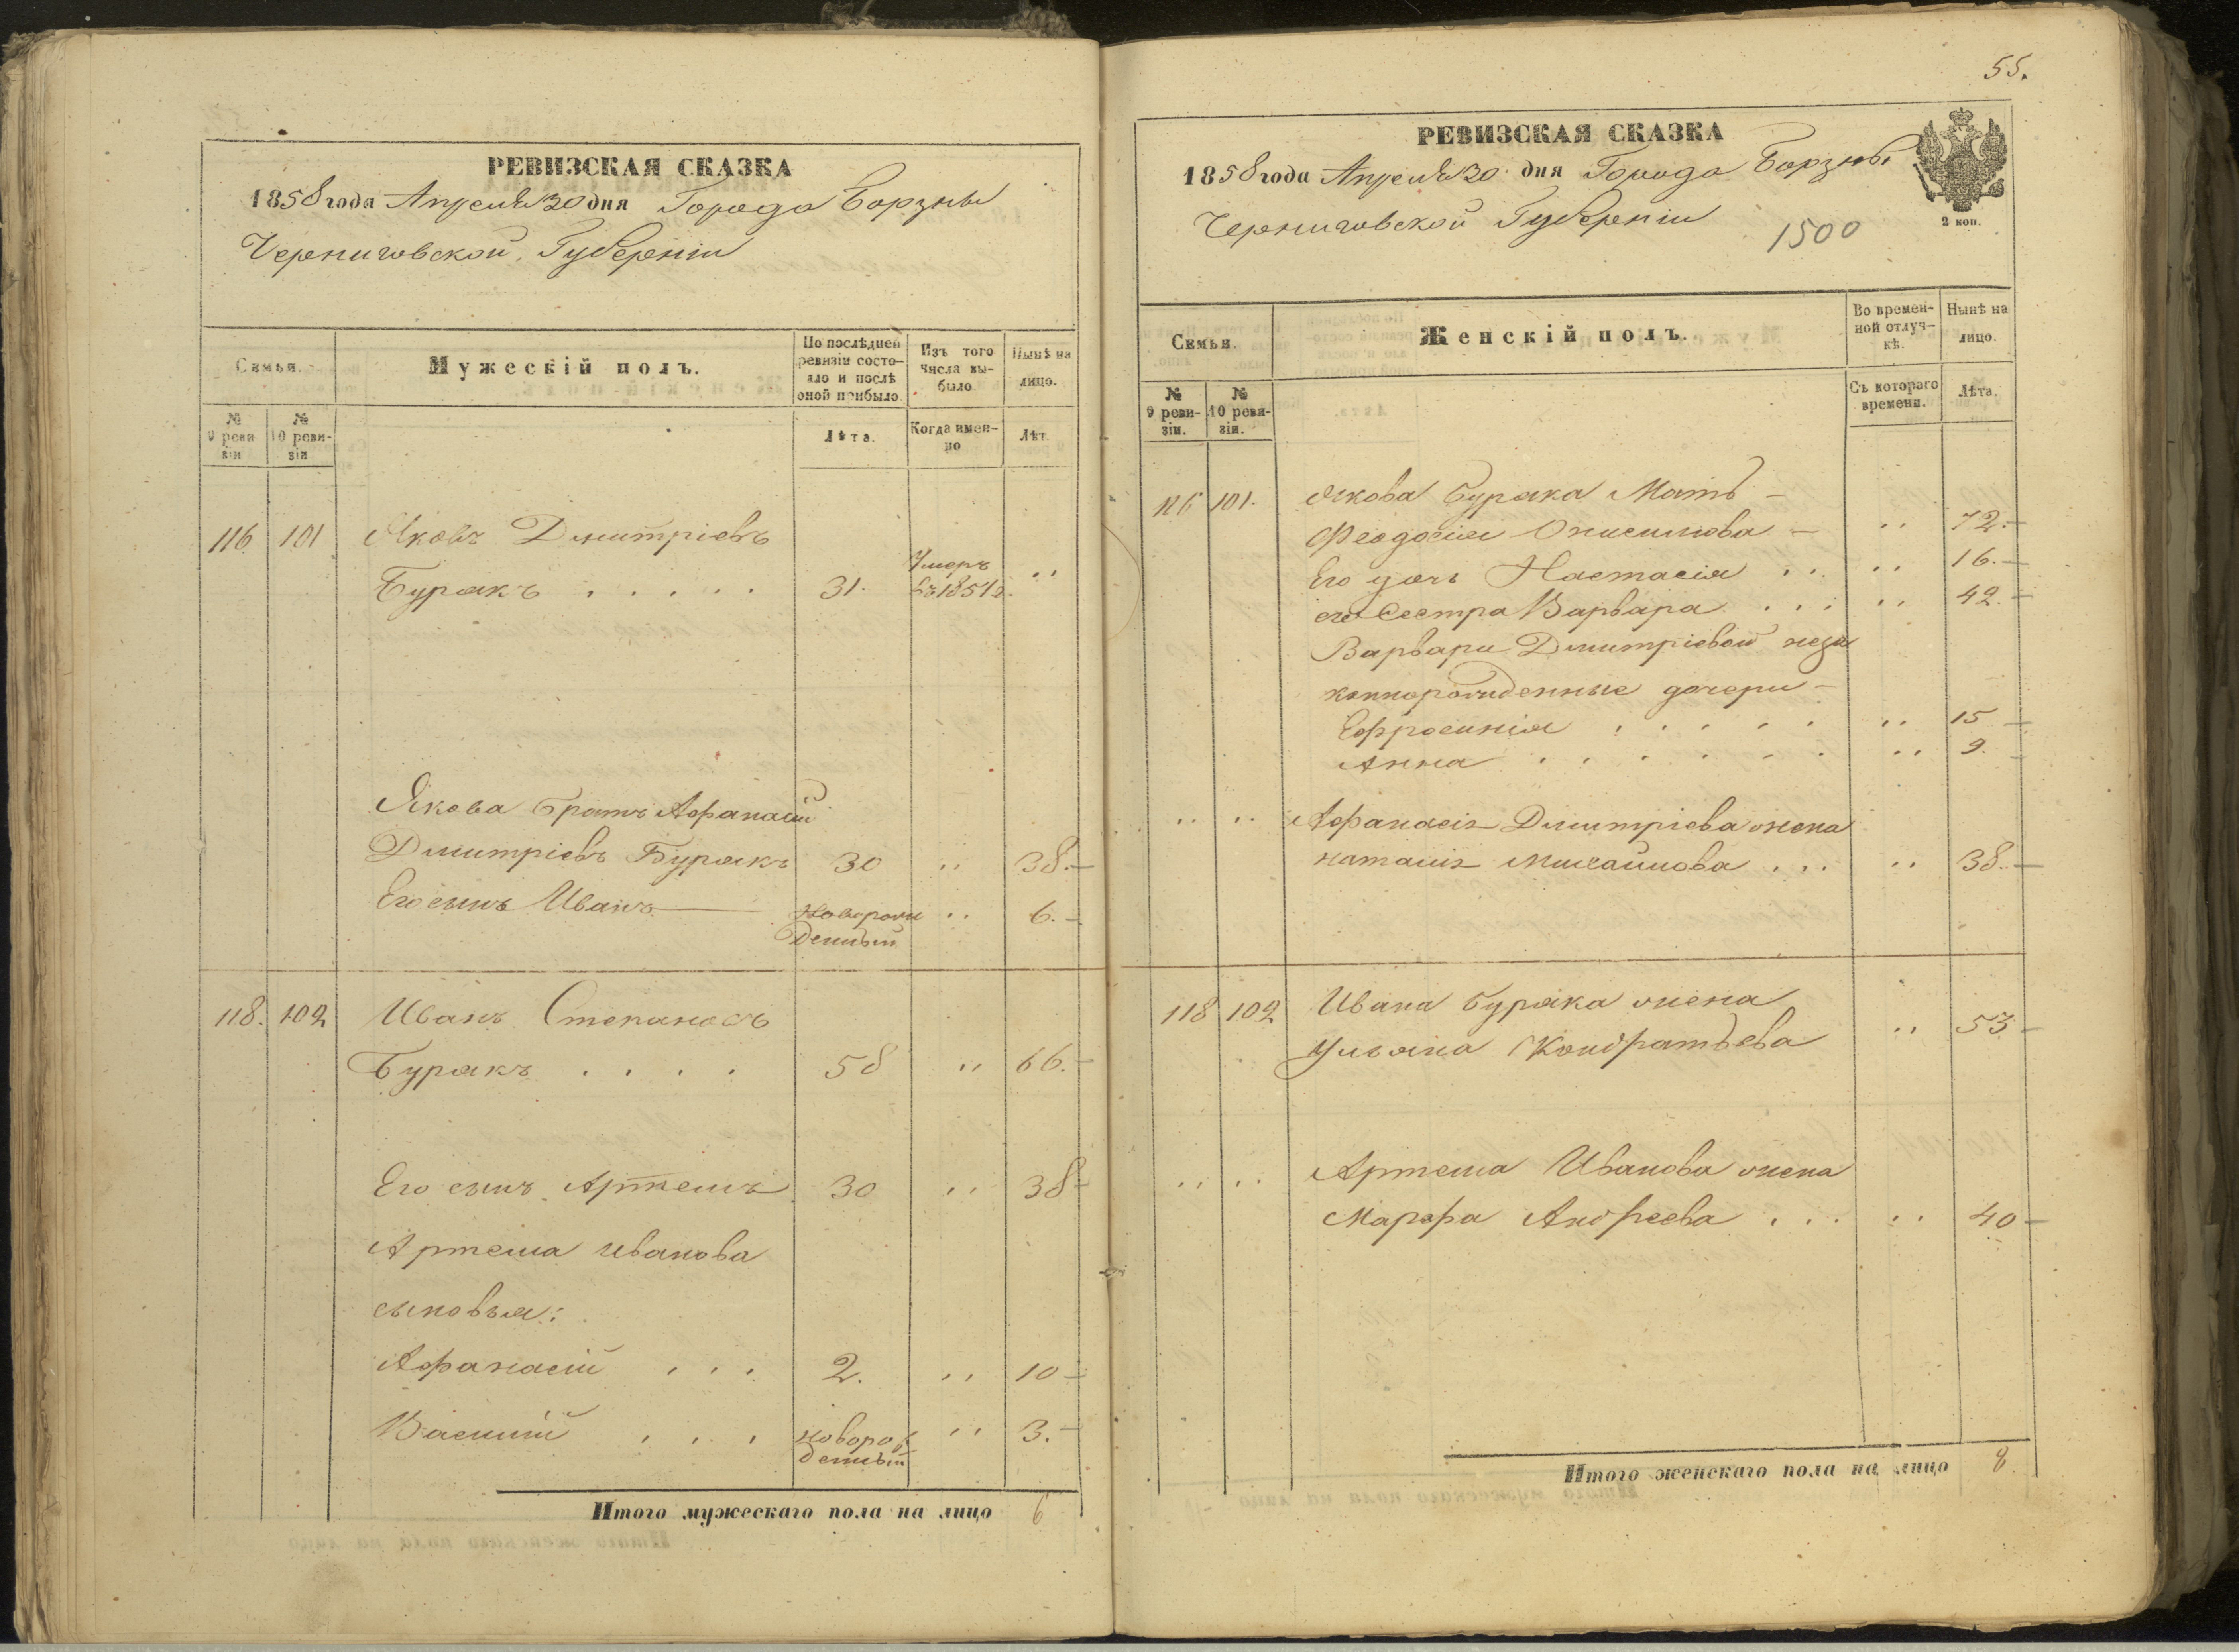 РЕВИЗСКАЯ СКАЗКА
1858 года Апреля 30 дня Города Борзны
Черниговской Губерніи
Семья.
Мужескій полъ.
По послѣдней ревизіи состояло и послѣ оной прибыло.
Изъ того числа выбыло
Нынѣ на лицо.
№ 9 ревизіи
№ 10 ревизіи
Лѣта.
Когда именно
Лѣт.
116 101 Яковъ Дмитріевъ
Бурякъ . . . . . 31. Умеръ въ 1851 г. ,,
Якова братъ Афанасій
Дмитріевъ Бурякъ 30 ,, 38.—
Его сынъ Иванъ — новорожденный ,, 6.—
118. 102 Иванъ Степановъ
Бурякъ . . . . 58 ,, 66.—
Его сынъ Артемъ 30 ,, 38—
Артема Иванова
сыновья:
Афанасій . . . 2. ,, 10—
Василій . . . новорожденный ,, 3.—
Итого мужескаго пола на лицо 6
55.
РЕВИЗСКАЯ СКАЗКА
1858 года Апреля 30 дня Города Борзны
Черниговской Губерніи 1500
2 коп.
Семьи.
Женскій полъ.
Во временной отлучкѣ.
Нынѣ на лицо.
№ 9 ревизіи.
№ 10 ревизіи.
Съ котораго времени.
Лѣта.
116 101. Якова Буряка Мать —
Феодосія Онисимова — ,, 72.—
Его дочь Настасія . . ,, 16.—
его Сестра Варвара . . . ,, 42.—
Варвары Дмитріевой неза
коннорожденные дочери —
Ефросинія . . . . . ,, 15 —
Анна . . . . . . ,, 9. —
,, ,, Афанасія Дмитріева жена
Наталія Михайлова . . . ,, 38.—
118 102 Ивана Буряка жена
Ульяна Кондратьева ,, 53—
,, ,, Артема Иванова жена
Марфа Андреева . . . ,, 40—
Итого женскаго пола на лицо 8